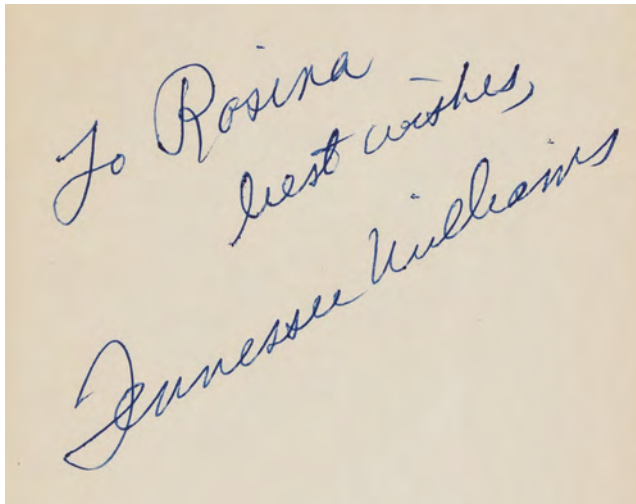 To Rosina
best wishes,
Tennessee Williams